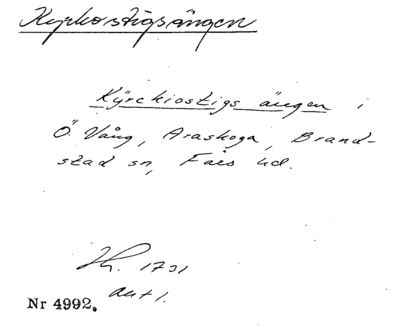 Kyrkostigsängen
Kÿrckiostigs ängen i
Ö. Vång, Araskoga, Brand-
stad sn, Färs hd.
1731
Nr 4992.